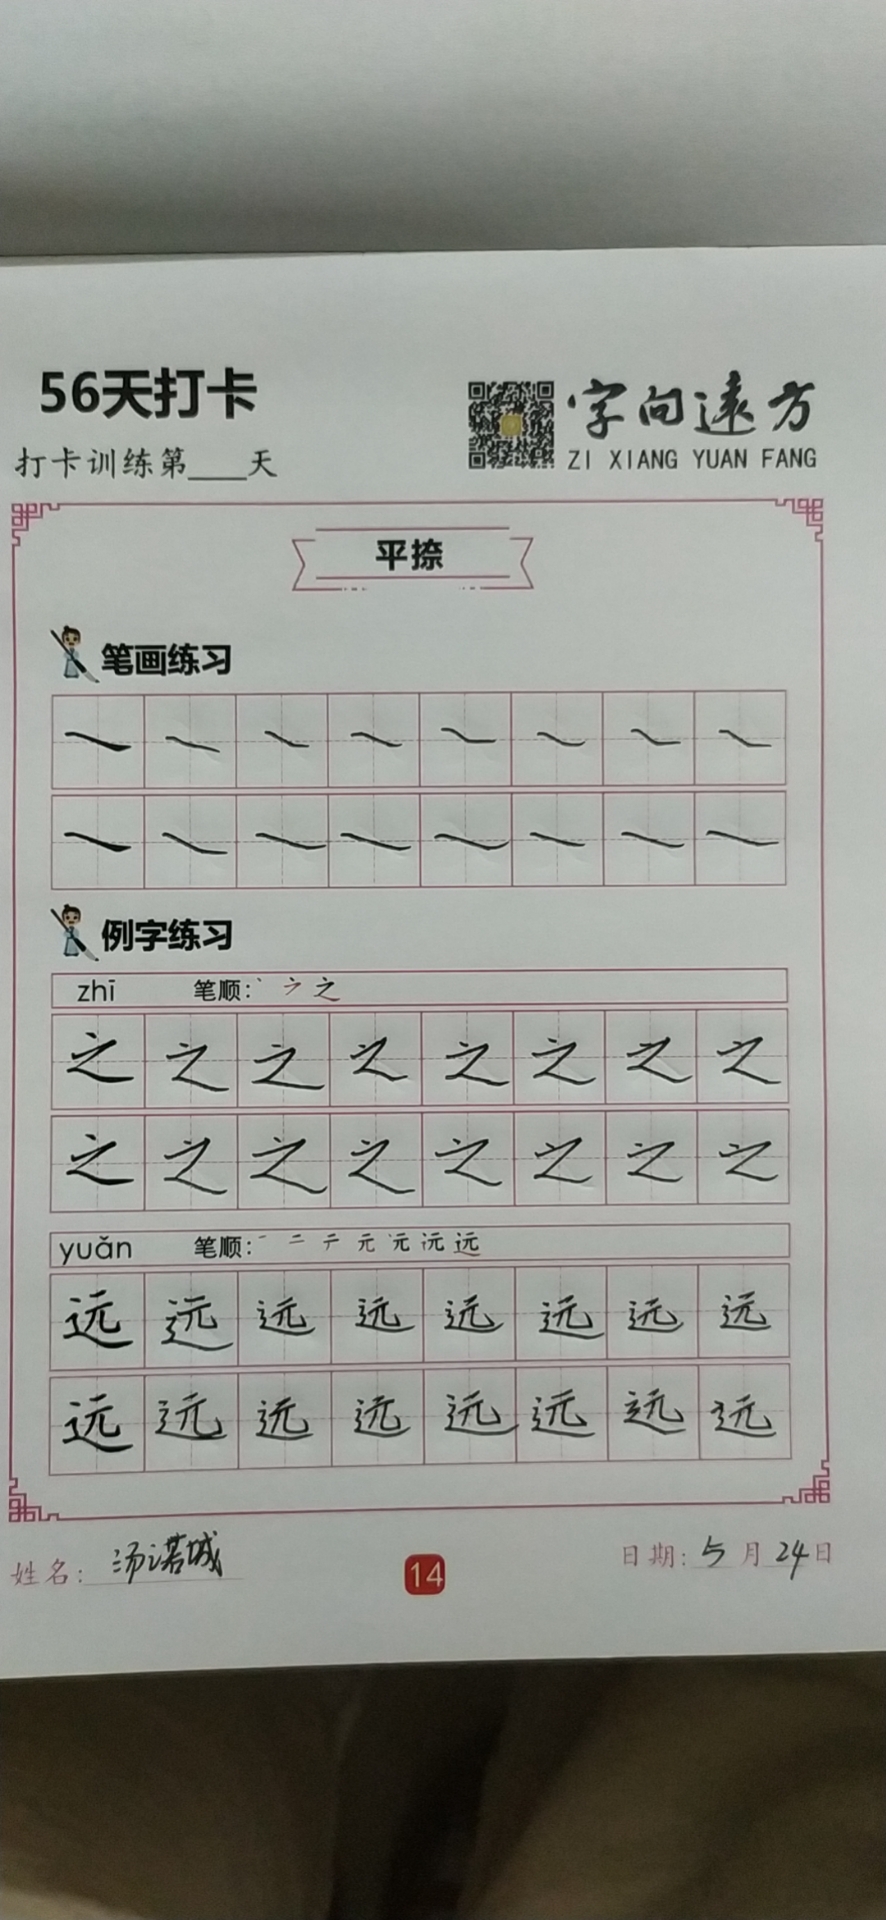 56天打卡
打卡训练第___天
字向遠方
ZI XIANG YUAN FANG
平捺
笔画练习
例字练习
zhī 笔顺: 丶 之
之 之 之 之 之 之 之 之
之 之 之 之 之 之 之 之
yuǎn 笔顺: 一 二 テ 元 远
远 远 远 远 远 远 远 远
远 远 远 远 远 远 远 远
姓名: 汤诺城
14
日期: 5月24日